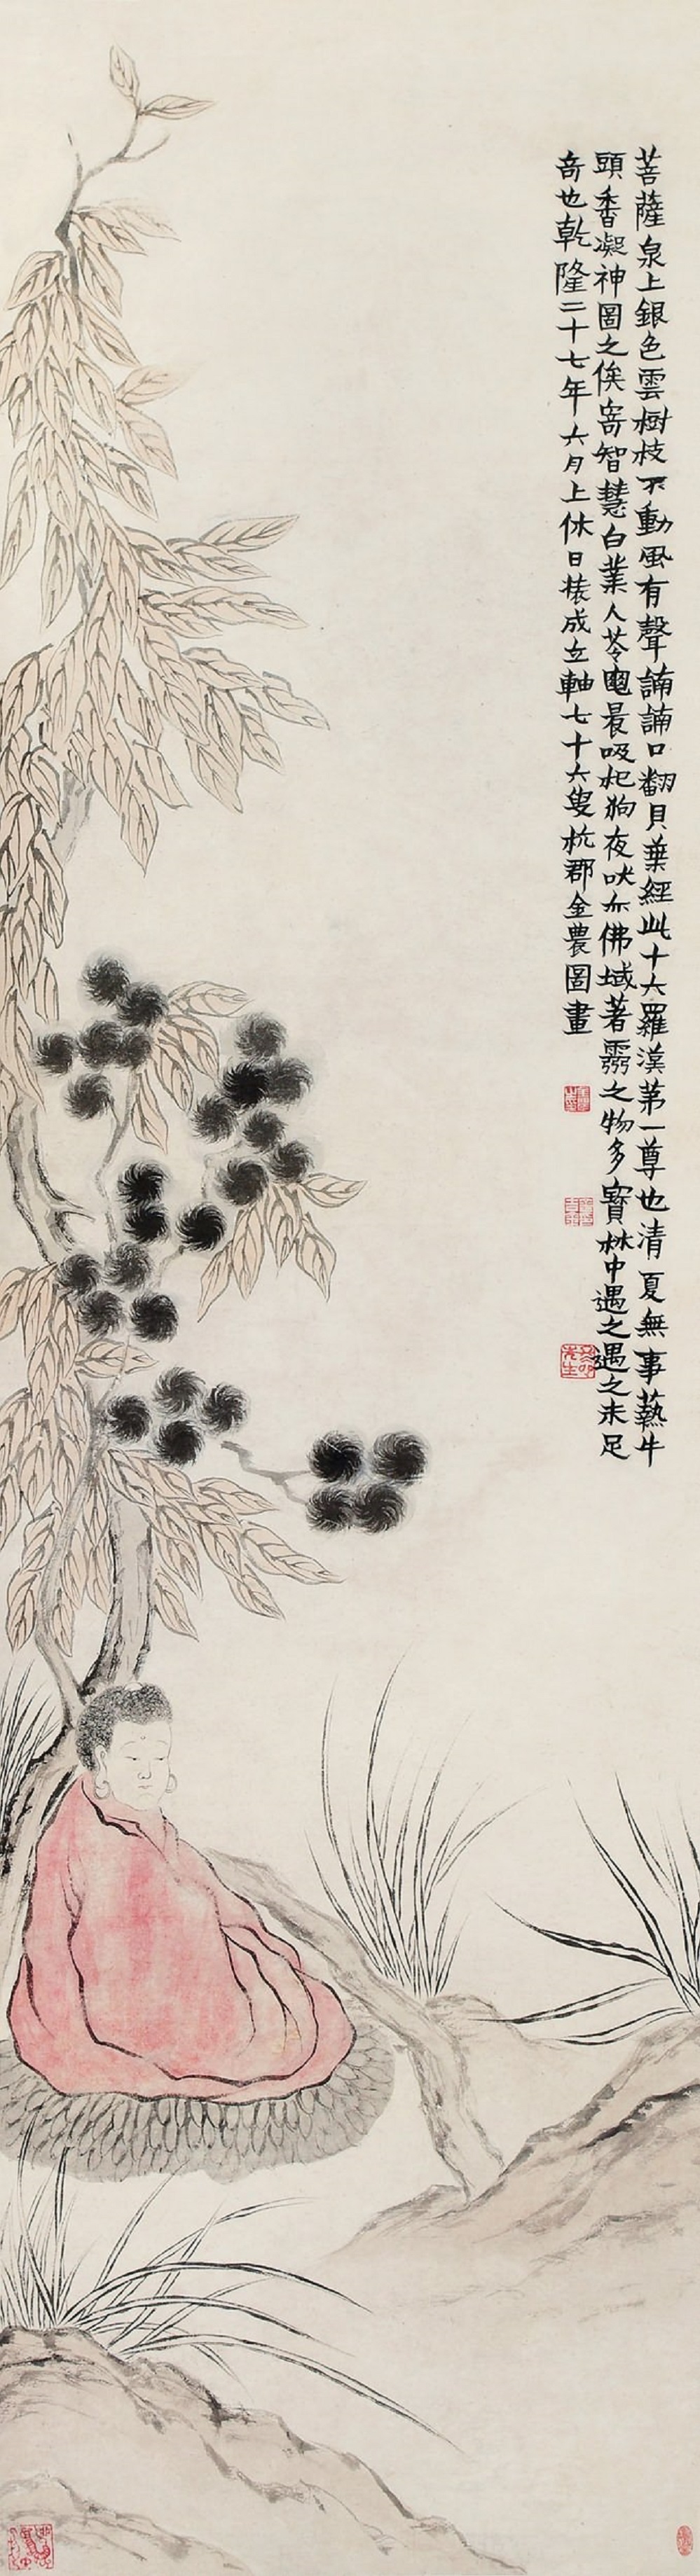 菩薩泉上銀色雲樹枝不動風有聲諵諵口翻貝葉經此十六羅漢第一尊也清夏無事爇牛
頭香凝神圖之俟寄智慧白業人苓龜晨吸杞狗夜吠亦佛域著靈之物多寶林中遇之遇之未足
奇也乾隆二十七年六月上休日裝成立軸七十六叟杭郡金農圖畫